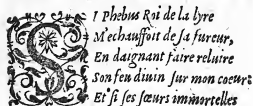 SI Phebus Roi de la lyre
M'echauffoit de sa fureur,
En daignant faire reluire
Son feu diuin sur mon coeur:
Et si ses sœurs immortelles